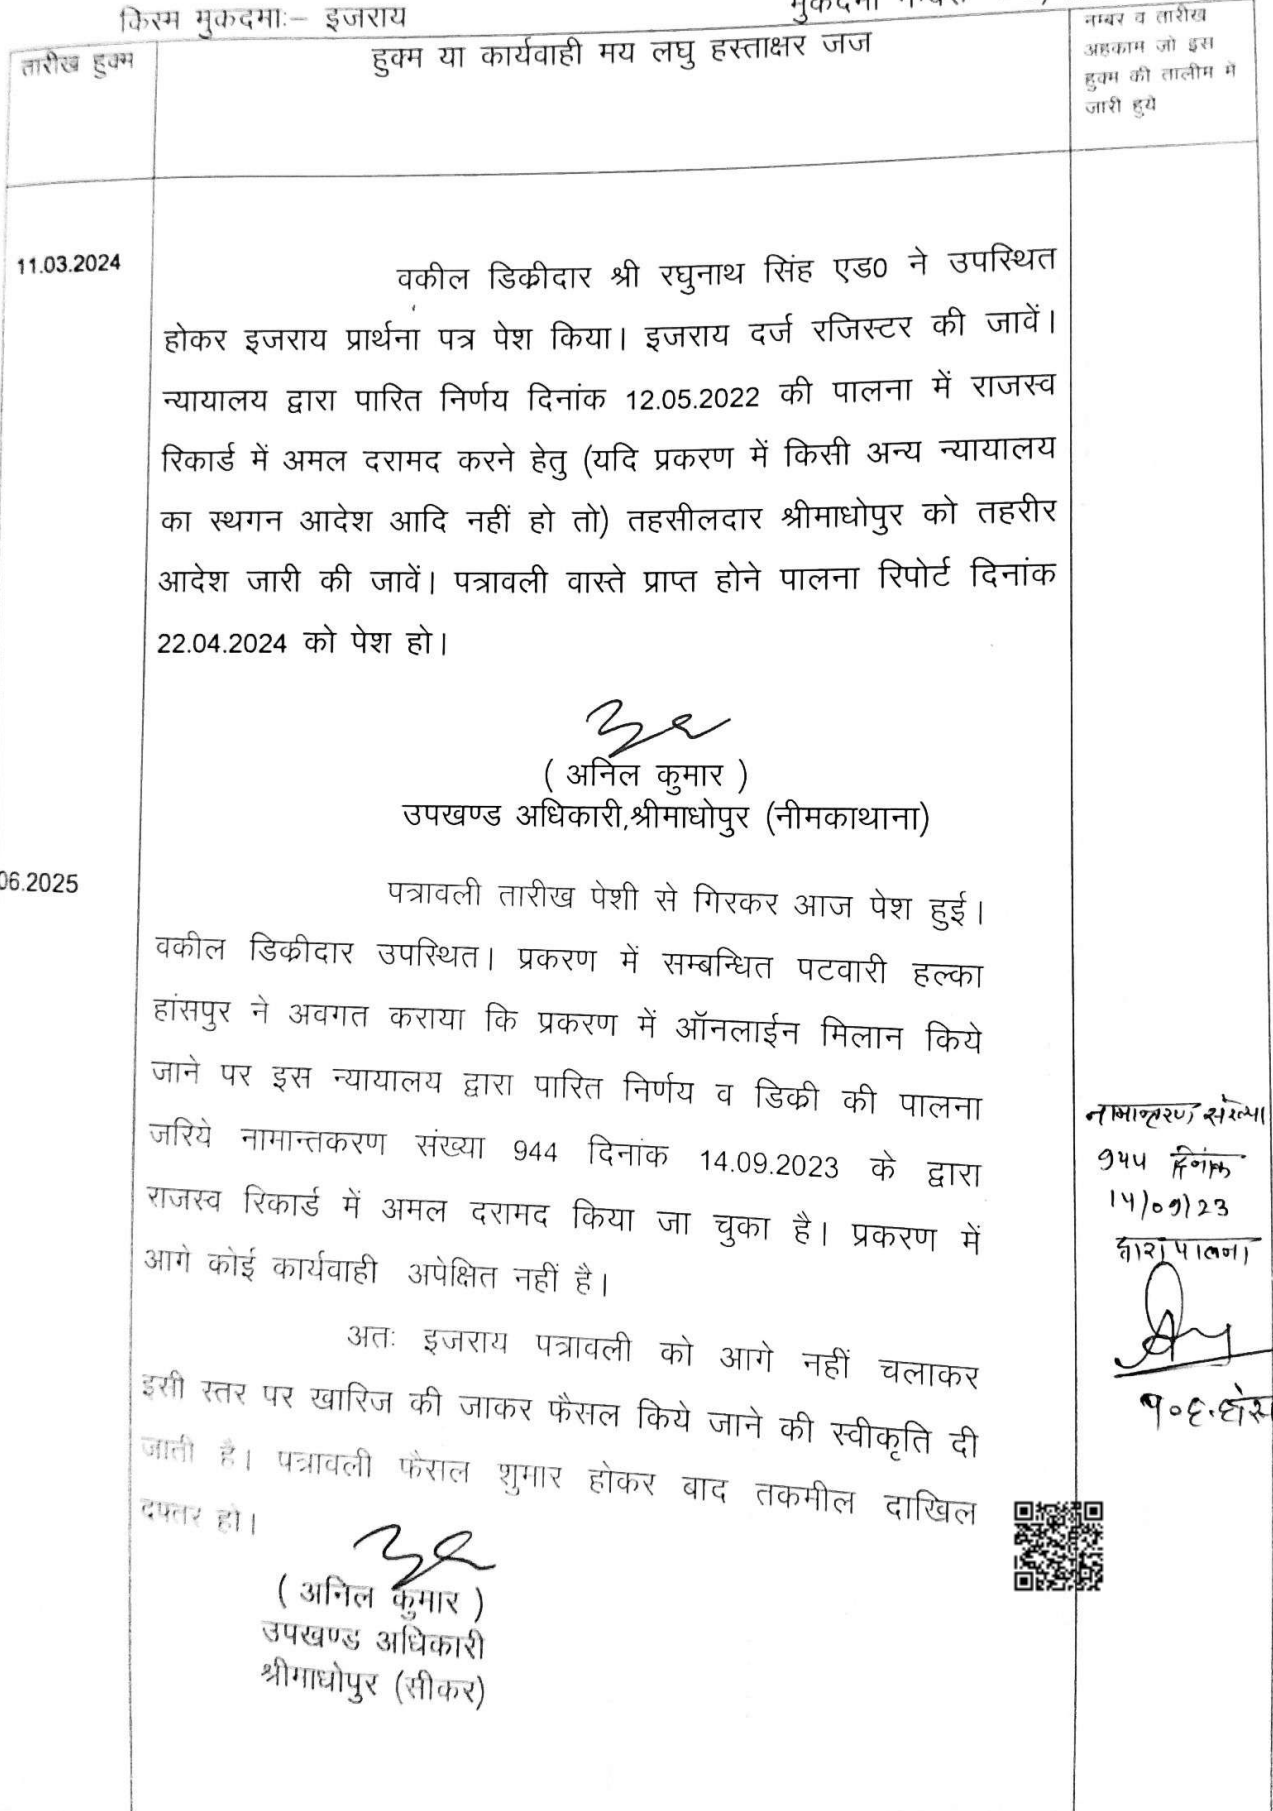 किस्म मुकदमाः– इजराय
तारीख हुक्म
हुक्म या कार्यवाही मय लघु हस्ताक्षर जज
नम्बर व तारीख
अहकाम जो इस
हुक्म की तालीम मे
जारी हुये
11.03.2024
वकील डिक्रीदार श्री रघुनाथ सिंह एड0 ने उपस्थित
होकर इजराय प्रार्थना पत्र पेश किया। इजराय दर्ज रजिस्टर की जावें।
न्यायालय द्वारा पारित निर्णय दिनांक 12.05.2022 की पालना में राजस्व
रिकार्ड में अमल दरामद करने हेतु (यदि प्रकरण में किसी अन्य न्यायालय
का स्थगन आदेश आदि नहीं हो तो) तहसीलदार श्रीमाधोपुर को तहरीर
आदेश जारी की जावें। पत्रावली वास्ते प्राप्त होने पालना रिपोर्ट दिनांक
22.04.2024 को पेश हो।
( अनिल कुमार )
उपखण्ड अधिकारी,श्रीमाधोपुर (नीमकाथाना)
06.2025
पत्रावली तारीख पेशी से गिरकर आज पेश हुई।
वकील डिक्रीदार उपस्थित। प्रकरण में सम्बन्धित पटवारी हल्का
हांसपुर ने अवगत कराया कि प्रकरण में ऑनलाईन मिलान किये
जाने पर इस न्यायालय द्वारा पारित निर्णय व डिक्री की पालना
जरिये नामान्तकरण संख्या 944 दिनांक 14.09.2023 के द्वारा
राजस्व रिकार्ड में अमल दरामद किया जा चुका है। प्रकरण में
आगे कोई कार्यवाही अपेक्षित नहीं है।
नामान्तरण संख्या
944 दिनांक
14/09/23
द्वारा पालना
अतः इजराय पत्रावली को आगे नहीं चलाकर
इसी स्तर पर खारिज की जाकर फैसल किये जाने की स्वीकृति दी
जाती है। पत्रावली फैसल शुमार होकर बाद तकमील दाखिल
दफ्तर हो।
( अनिल कुमार )
उपखण्ड अधिकारी
श्रीमाधोपुर (सीकर)